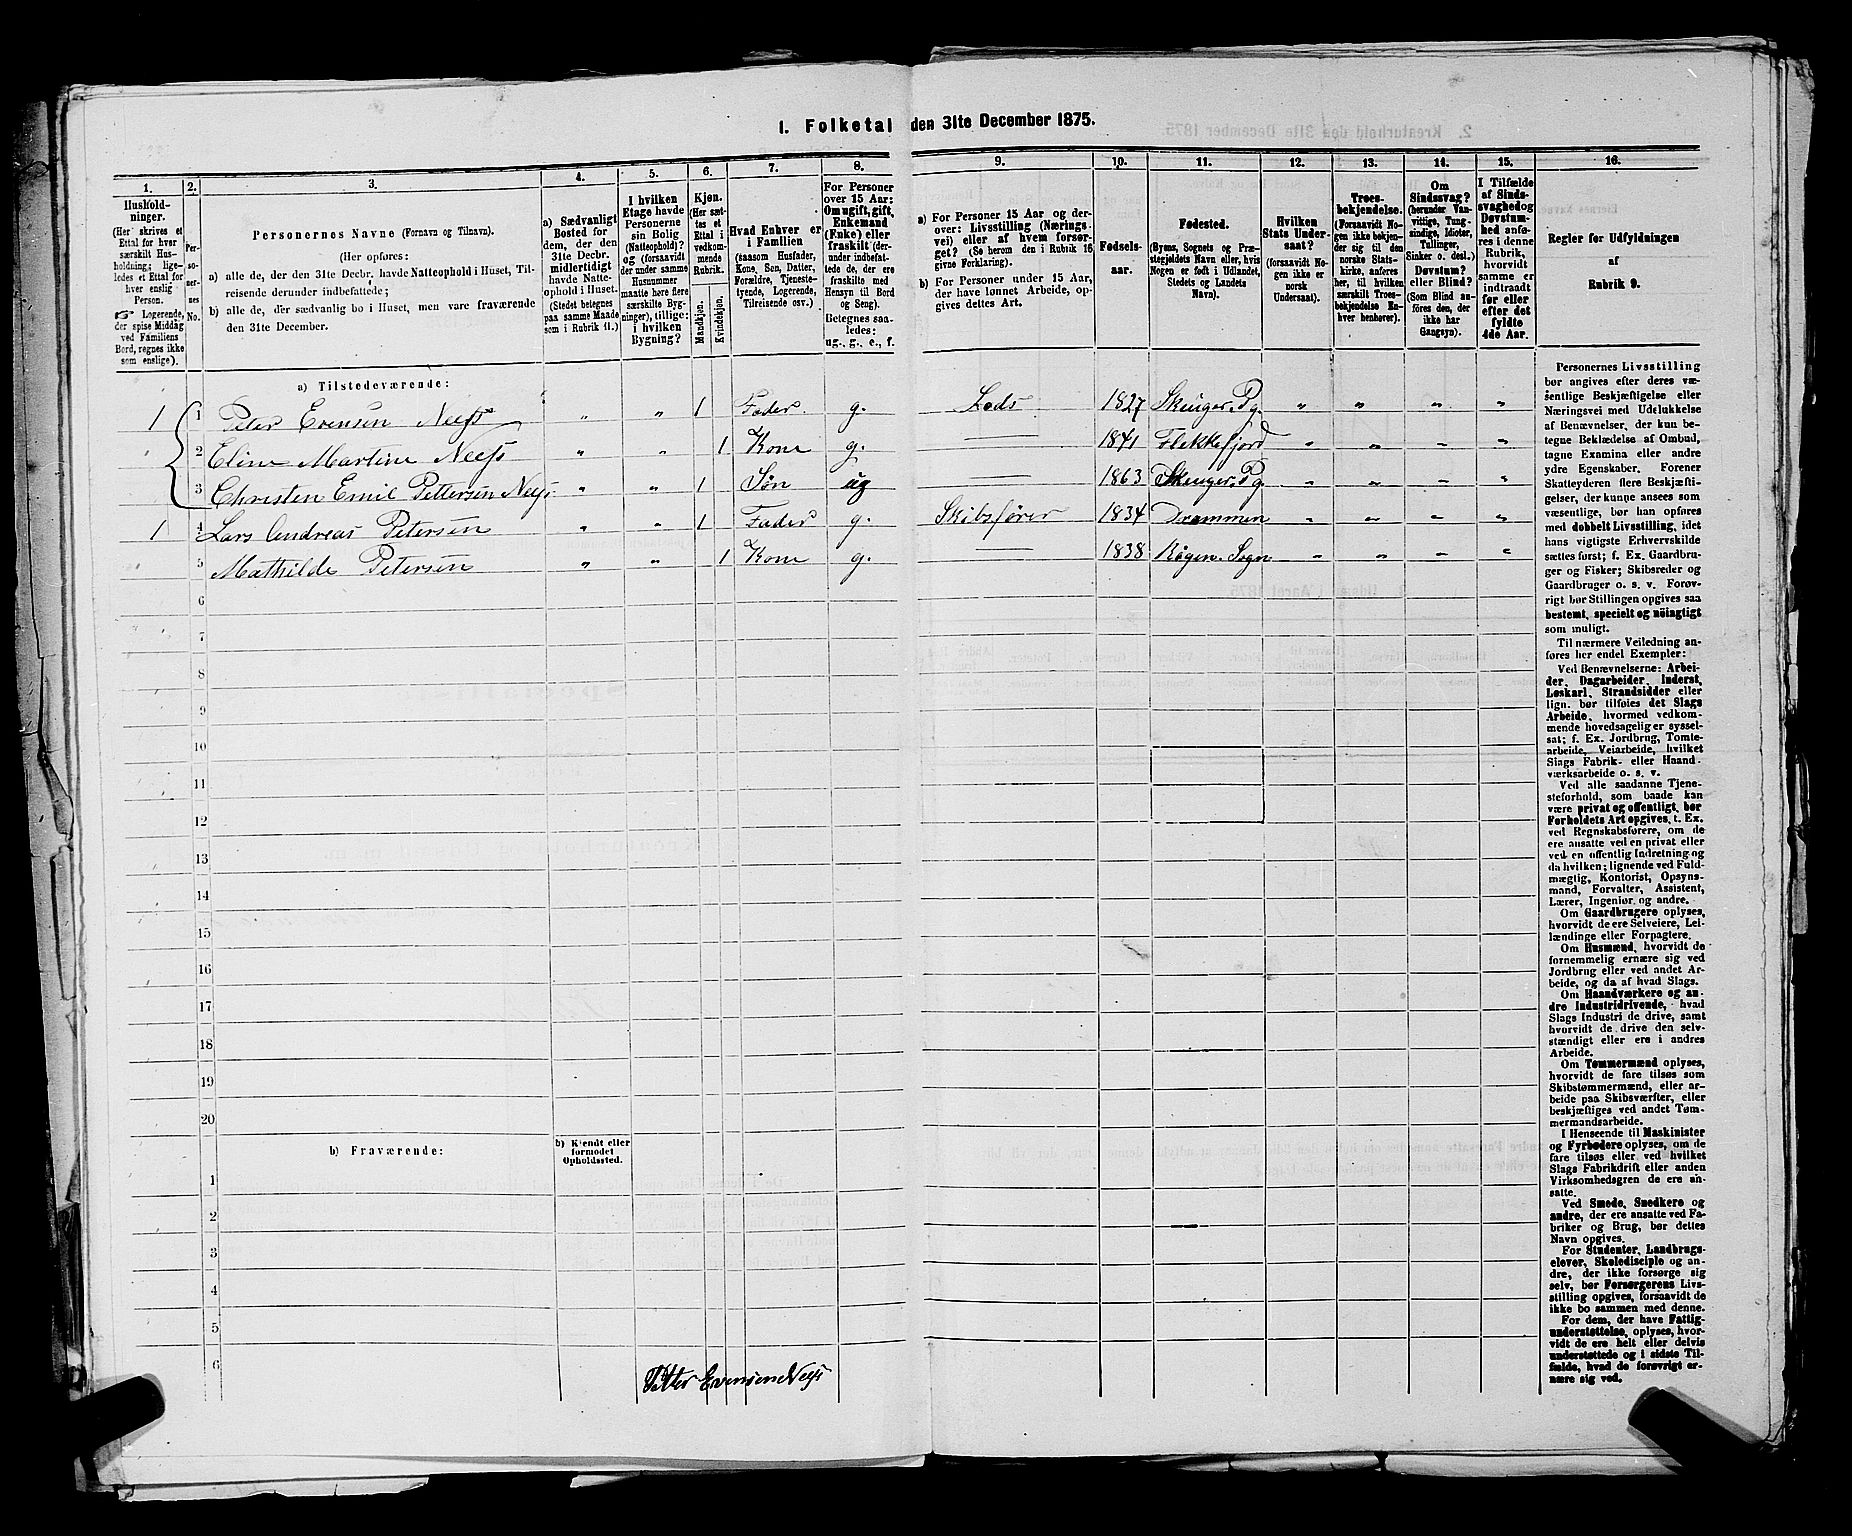 1. Folketal den 31te December 1875.
1. 2. 3. 4. 5. 6. 7. 8. 9. 10. 11. 12. 13. 14. 15. 16.
Husholdninger.
(Her skrives et
Ettal for hver
særskilt Husholdning;
ligeledes et Ettal for
hver enslig
Person.
☞ Logerende,
der spise Middag
ved Familiens
Bord, regnes ikke
som enslige).
Personernes No.
Personernes Navne (Fornavn og Tilnavn).
(Her opføres:
a) alle de, der den 31te Decbr. havde Natteophold i Huset, Tilreisende derunder indbefattede;
b) alle de, der sædvanlig bo i Huset, men vare fraværende
den 31te December.
a) Sædvanligt
Bosted for
dem, der den
31te Decbr.
midlertidigt
havde Natteophold i Huset.
(Stedet betegnes
paa samme Maade
som i Rubrik 11.)
I hvilken
Etage havde
Personerne
sin Bolig
(Natteophold)?
og (forsaavidt
der under samme
Husnummer
maatte høre flere
særskilte Bygninger), tillige:
i hvilken
Bygning?
Kjøn.
(Her sættes et
Ettal i
vedkommende
Rubrik.
Mandkjøn.
Kvindekjøn.
Hvad Enhver er
i Familien
(saasom Husfader,
Kone, Søn, Datter,
Forældre, Tjenestetyende, Logerende,
Tilreisende osv.)
For Personer
over 15 Aar:
Om ugift, gift,
Enkemand
(Enke) eller
fraskilt (derunder indbefattede de, der ere
fraskilte med
Hensyn til Bord
og Seng).
Betegnes saaledes:
ug., g., e., f.
a) For Personer 15 Aar og derover: Livsstilling (Næringsvei) eller af hvem forsørget? (Se herom den i Rubrik 16
givne Forklaring).
b) For Personer under 15 Aar,
der have lønnet Arbeide, opgives dettes Art.
Fødselsaar.
Fødested.
(Byens, Sognets og Præstegjeldets Navn eller, hvis
Nogen er født i Udlandet,
Stedets og Landets
Navn).
Hvilken
Stats Undersaat?
(forsaavidt Nogen ikke er
norsk
Undersaat).
Troesbekjendelse.
(Forsaavidt Nogen ikke bekjender sig til den
norske Statskirke, anføres
her, til hvilken
særskilt Troesbekjendelse Enhver henhører).
Om
Sindssvag?
(herunder Vanvittige, Tungsindige, Idioter,
Tullinger,
Sinker o. desl.)
Døvstum?
eller Blind?
(Som Blind anføres den, der
ikke har
Gangsyn).
I Tilfælde
af Sindssvaghed og
Døvstumhed anføres i denne
Rubrik,
hvorvidt
samme er
indtraadt
før eller
efter det
fyldte
4de Aar.
Regler for Udfyldningen
af
Rubrik 9.
a) Tilstedeværende:
1 1 Peter Evensen Neess „ „ 1 Fader. g. Lods 1827 Skouger. Pg. „ „ „ „
2 Eline Martine Neess „ „ 1 Kone g. — 1841 Flekkefjord „ „ „ „
3 Christen Emil Pettersen Neess „ „ 1 Søn ug — 1863 Skouger. Pg. „ „ „ „
1 4 Lars Andreas Petersen „ „ 1 Fader g. Skibsfører 1834 Drammen „ „ „ „
5 Mathilde Petersen „ „ 1 Kone g. — 1838 Røgen. Sogn „ „ „ „
6
7
8
9
10
11
12
13
14
15
16
17
18
19
20
b) Fraværende:
b) Kjendt eller
formodet
Opholdssted.
1
2
3
4
5
6
Petter Evensen Neess
Personernes Livsstilling
bør angives efter deres væsentlige Beskjæftigelse eller
Næringsvei med Udelukkelse
af Benævnelser, der kun betegne Beklædelse af Ombud,
tagne Examina eller andre
ydre Egenskaber. Forener
Skatteyderen flere Beskjæftigelser, der kunne ansees som
væsentlige, bør han opføres
med dobbelt Livsstilling, idet
hans vigtigste Erhvervskilde
sættes først; f. Ex. Gaardbruger og Fisker; Skibsreder og
Gaardbruger o. s. v. Forøvrigt bør Stillingen opgives saa
bestemt, specielt og nöiagtigt
som muligt.
Til nærmere Veiledning anføres her endel Exempler:
Ved Benævnelserne: Arbeider, Dagarbeider, Inderst,
Løskarl, Strandsidder eller
lign. bør tilføies det Slags
Arbeide, hvormed vedkommende hovedsagelig er sysselsat; f. Ex. Jordbrug, Tomtearbeide, Veiarbeide, hvilket
Slags Fabrik- eller Haandværksarbeide o. s. v.
Ved alle saadanne Tjenesteforhold, som baade kan
være privat og offentligt, bør
Forholdets Art opgives, t. Ex.
ved Regnskabsførere, om de
ere ansatte ved en privat eller
ved en offentlig Indretning og
da hvilken; lignende ved Fuldmægtig, Kontorist, Opsynsmand, Forvalter, Assistent,
Lærer, Ingeniør, og andre.
Om Gaardbrugere oplyses,
hvorvidt de ere Selveiere, Leilændinge eller Forpagtere.
Om Husmænd, hvorvidt de
fornemmelig ernære sig ved
Jordbrug eller ved andet Arbeide, og da af hvad Slags.
Om Haandværkere og andre Industridrivende, hvad
Slags Industri de drive, samt
hvorvidt de drive den selvstændigt eller ere i andres
Arbeide.
Om Tømmermænd oplyses,
hvorvidt de fare tilsøs som
Skibstømmermænd, eller arbeide paa Skibsværfter, eller
beskjæftiges ved andet Tømmermandsarbeide.
I Henseende til Maskinister
og Fyrbødere oplyses, om de
fare tilsøs eller ved hvilket
Slags Fabrikdrift eller anden
Virksomhedsgren de ere ansatte.
Ved Smede, Snedkere og
andre, der ere ansatte ved Fabriker og Brug, bør dettes
Navn opgives.
For Studenter, Landbrugselever, Skoledisciple og andre, der ikke forsørge sig
selv, bør Forsørgerens Livsstilling opgives, forsaavidt de
ikke bo sammen med denne.
For dem, der have Fattigunderstøttelse, oplyses, hvorvidt de ere helt eller delvis
understøttede og i sidste Tilfælde, hvad de forøvrigt ernære sig ved.